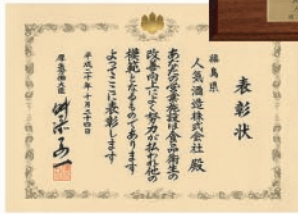 表彰状
福島県
人気酒造株式会社 殿
あなたの営業施設は食品衛生の
改善向上によく努力が払われ他の
模範となるものであります
よってここに表彰します
平成二十年十月二十四日
厚生労働大臣